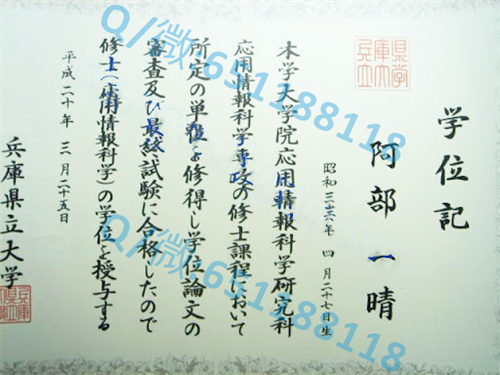 学位記
阿部一晴
昭和三十六年 四月二十七日生
本学大学院応用情報科学研究科
応用情報科学専攻の修士課程において
所定の単位を修得し学位論文の
審査及び最終試験に合格したので
修士(応用情報科学)の学位を授与する
平成二十年 三月二十五日
兵庫県立大学
Q/微:651188118
Q/微:651188118
Q/微:651188118